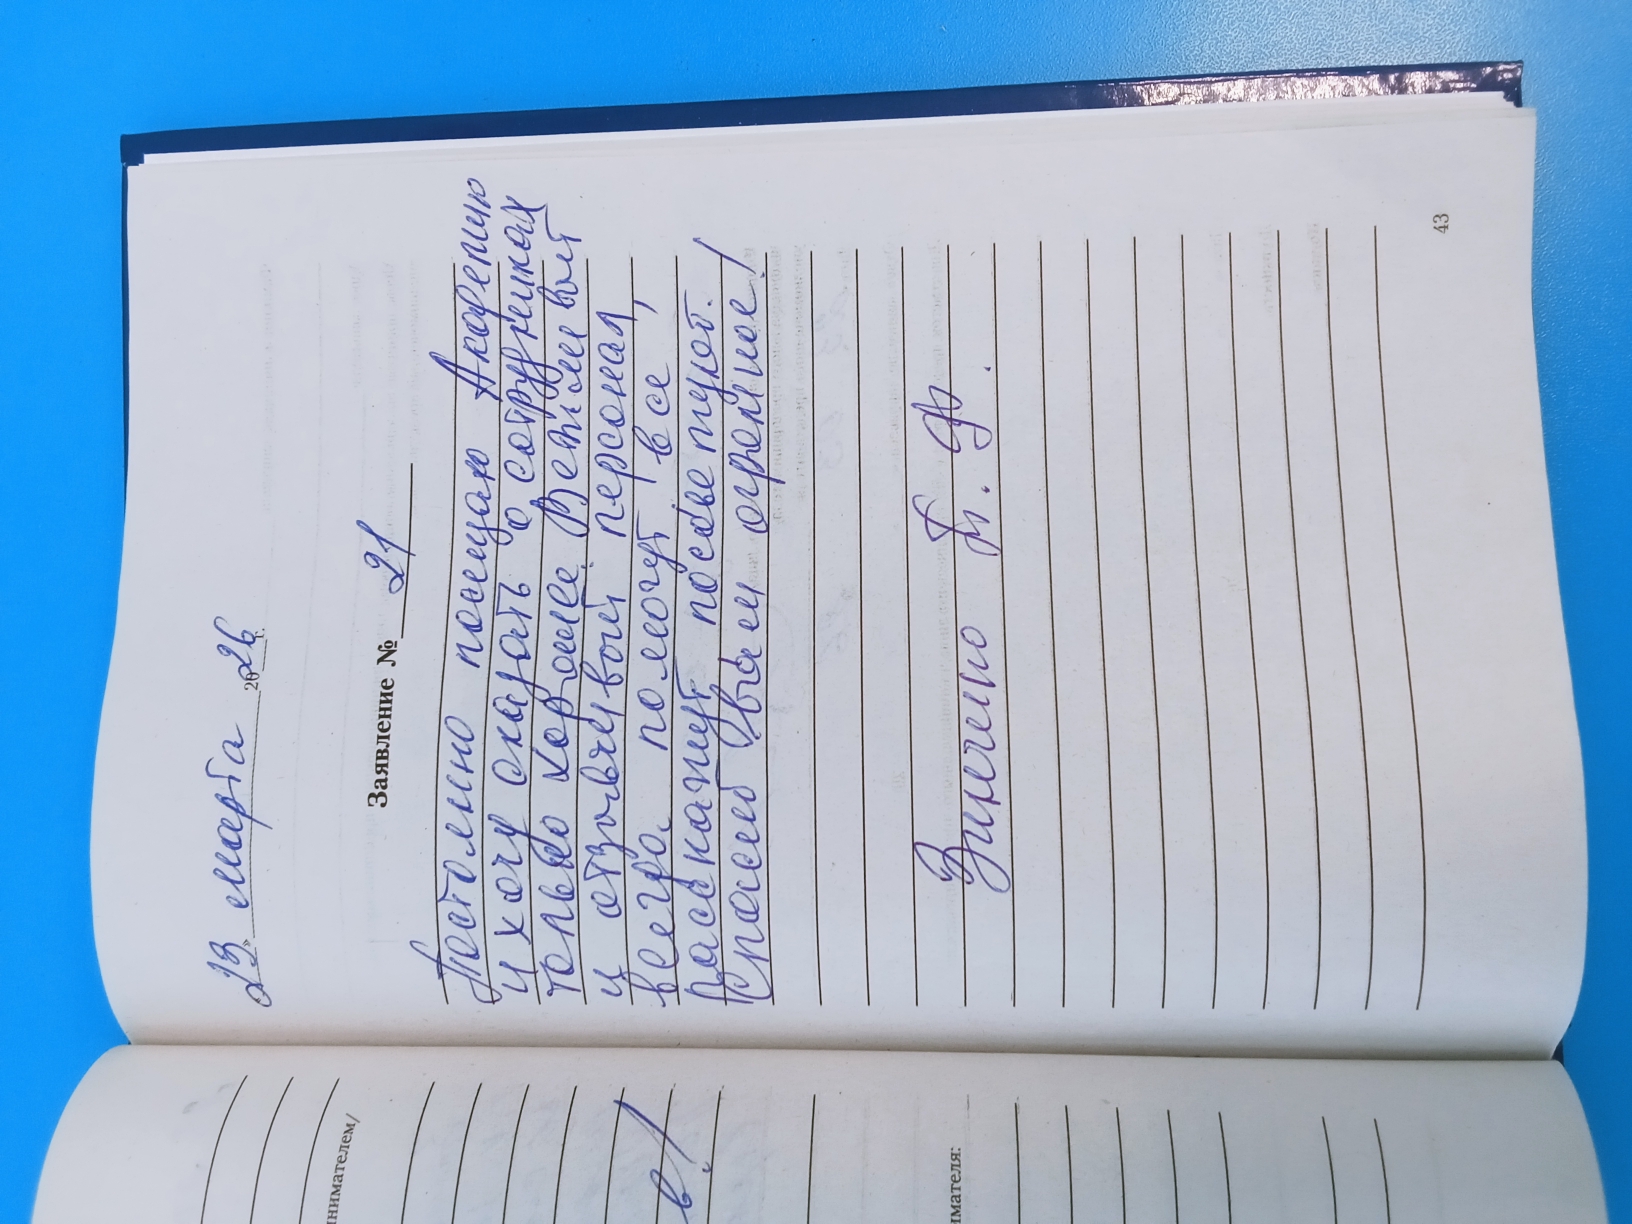 «23» марта 2026 г.
Заявление № 21
Постоянно посещаю Академию
и хочу сказать о сотрудниках
только хорошее. Вежливый
и отзывчивый персонал,
всегда помогут, все
расскажут посоветуют.
Спасибо Вам огромное!
Зинченко Т. Ф.
43
нимателем/
в!
имателя: